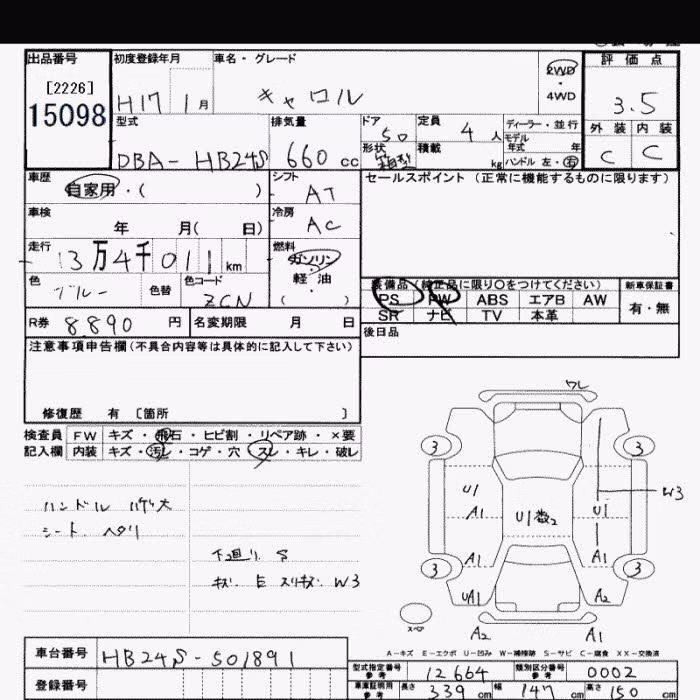 出品番号 初度登録年月 車名・グレード 2WD ・ 4WD 評価点
[2226]
15098
H17 1月 キャロル 3.5
型式 排気量 ドア 定員 ディーラー・並行
DBA-HB24S 660cc 5D 4人 モデル年式 年 外装 内装
形状 箱型 積載 kg ハンドル 左・右 C C
車歴 シフト セールスポイント(正常に機能するものに限ります)
自家用・( ) AT
車検 冷房
年 月( 日) AC
走行 燃料
13万4千011km ガンリン・軽油( )
色 色替 色コード 装備品(純正品に限り○をつけてください) 新車保証書
ブルー ZCN PS PW ABS エアB AW 有・無
SR ナビ TV 本革
R券 8890円 名変期限 月 日 後日品
注意事項申告欄(不具合内容等は具体的に記入して下さい)
修復歴 有 [箇所 ]
検査員 FW キズ・飛石・ヒビ割・リペア跡・×要
記入欄 内装 キズ・汚レ・コゲ・穴・スレ・キレ・破レ
ハンドル ハゲ大
シート ヘタリ
下廻り S
キズ 凹 スリキズ W3
ワレ
3 3
U1 W3
A1 U1数2 U1
A1 A1
3 3
UA1 A2
スペア
A2 A1
A-キズ E-エクボ U-凹み W-補修跡 S-サビ C-腐食 XX-交換済
車台番号 HB24S-501891
登録番号
型式指定番号 参考 12664 類別区分番号 参考 0002
車庫証明用 参考 長さ 339cm 幅 147cm 高さ 150cm